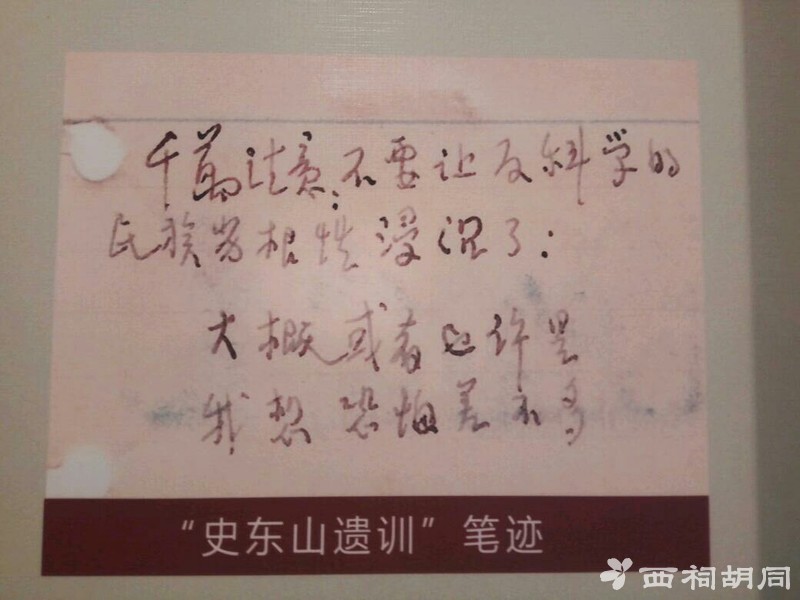 千萬注意：不要让反科学的
民族劣根性浸沉了：
大概或者也许是
我想恐怕差不多
“史东山遗训”笔迹
西祠胡同